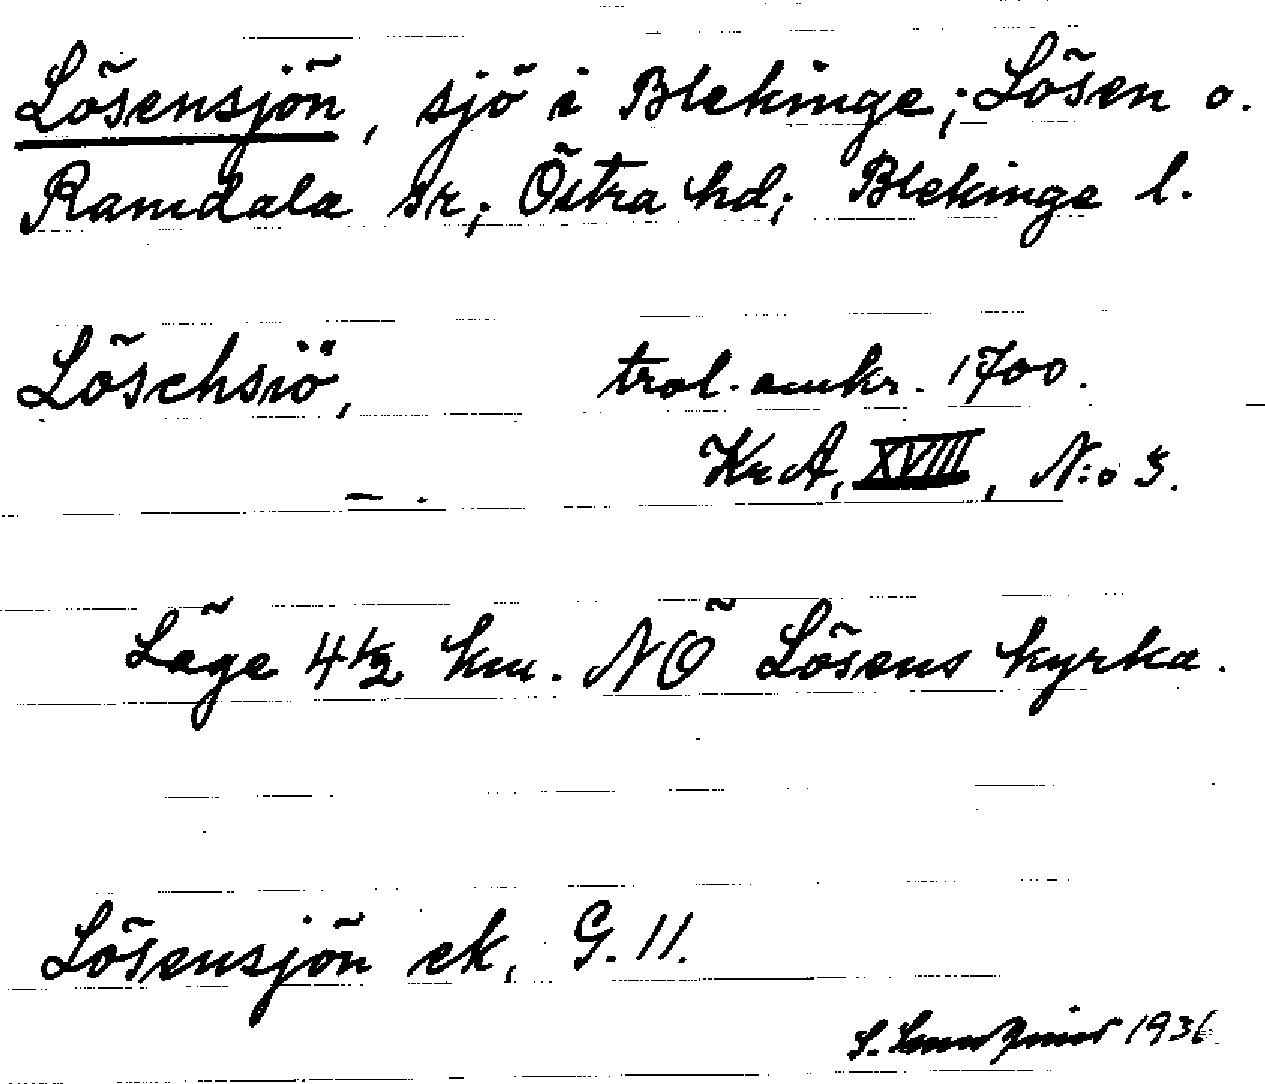 Lösensjön, sjö i Blekinge; Lösen o.
Ramdala sr; Östra hd; Blekinge l.
Löschsiö, trol. omkr. 1700.
KrA, XVIII, N:o 3.
Läge 4 1/2 km. NÖ Lösens kyrka.
Lösensjön ek, G. 11.
S. 1936